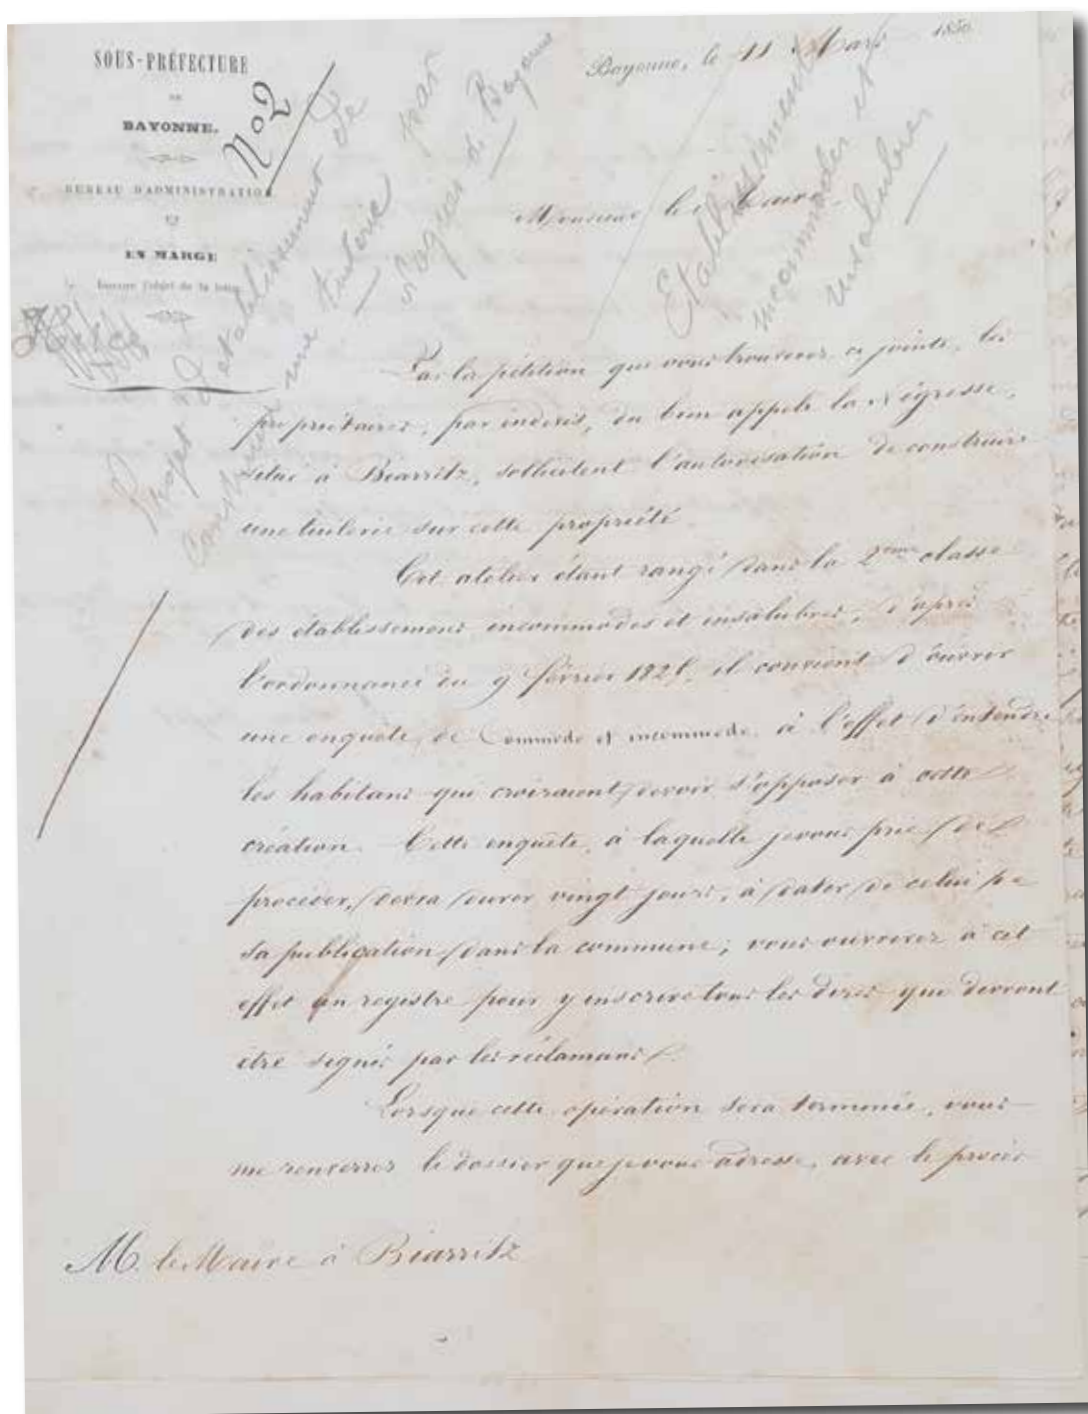 SOUS-PRÉFECTURE
DE
BAYONNE.
BUREAU D'ADMINISTRATION
EN MARGE
l'objet de la
N° 2
Bayonne, le 11 Mars 1850
Projet d'établissement de
construire une tuilerie par
Jacques de Bayonne
Etablissements
incommodes et
insalubres
Monsieur le Maire,
Par la pétition que vous trouverez ci jointe, les
propriétaires, par indivis, du bien appelé la Négresse,
situé à Biarritz, sollicitent l'autorisation de construire
une tuilerie sur cette propriété.
Cet atelier étant rangé dans la 2ème classe
des établissemens incommodes et insalubres, d'après
l'ordonnance du 9 février 1825, il convient d'ouvrir
une enquête, de Commodo et incommodo, à l'effet d'entendre
les habitans qui croiraient devoir s'opposer à cette
création. Cette enquête, à laquelle je vous prie de
procéder, devra durer vingt jours, à dater de celui de
sa publication dans la commune; vous ouvrirez à cet
effet un registre pour y inscrire tous les dires que devront
être signés par les réclamans.
Lorsque cette opération sera terminée, vous
me renverrez le dossier que je vous adresse, avec le procès
M. le Maire à Biarritz